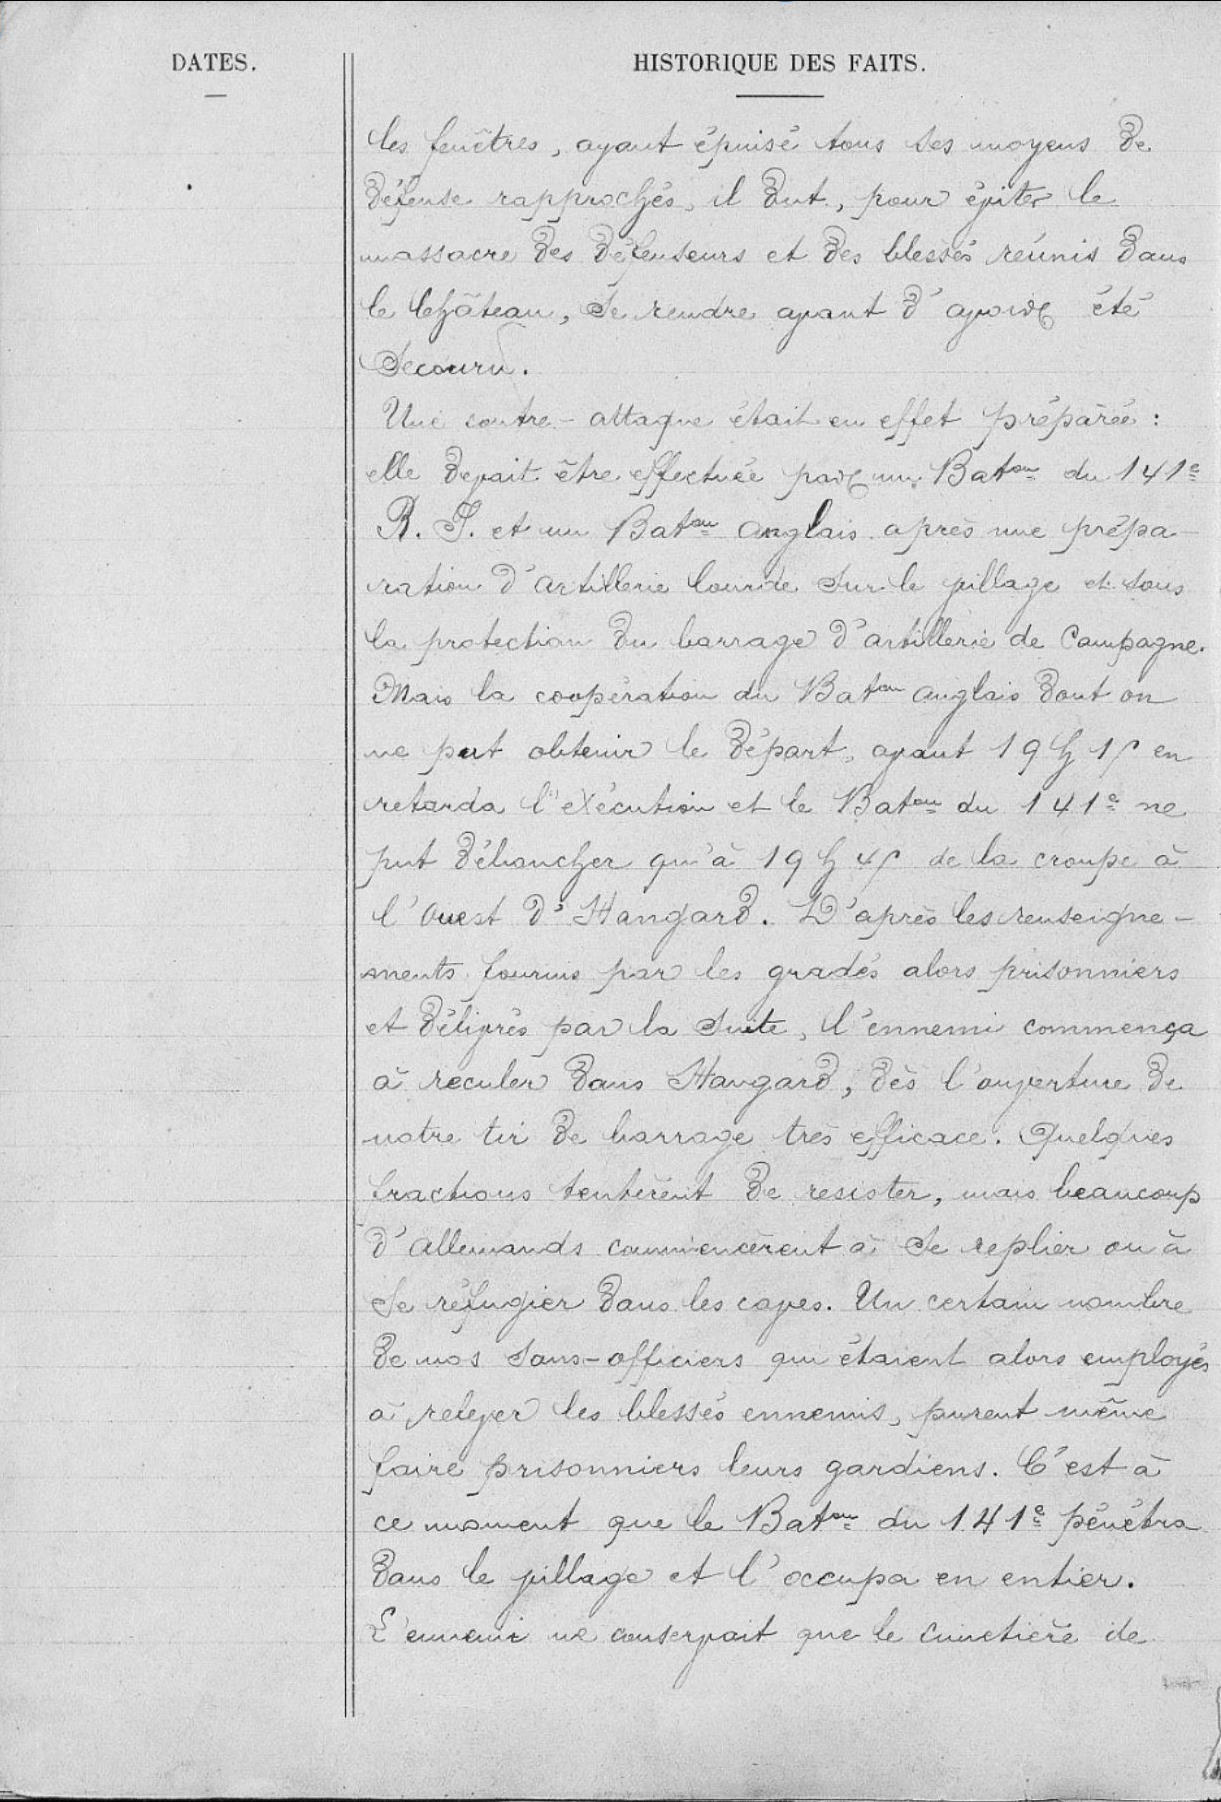 DATES.
HISTORIQUE DES FAITS.
les fenêtres, ayant épuisé tous ses moyens de
défense rapprochés, il dut, pour éviter le
massacre des défenseurs et des blessés réunis dans
le château, se rendre avant d'avoir été
secouru.
Une contre-attaque était en effet préparée :
elle devait être effectuée par un Baton du 141e
R. I. et un Baton anglais après une prépa-
ration d'artillerie lourde sur le village et sous
la protection du barrage d'artillerie de Campagne.
Mais la coopération du Baton anglais dont on
ne put obtenir le départ, avant 19 h 15 en
retarda l'exécution et le Baton du 141e ne
put déboucher qu'à 19 h 45 de la croupe à
l'Ouest d'Hangard. D'après les renseigne-
ments fournis par les gradés alors prisonniers
et délivrés par la suite, l'ennemi commença
à reculer dans Hangard, dès l'ouverture de
notre tir de barrage très efficace. Quelques
fractions tentèrent de resister, mais beaucoup
d'allemands commencèrent à se replier ou à
se réfugier dans les caves. Un certain nombre
de nos sous-officiers qui étaient alors employés
à relever les blessés ennemis, purent même
faire prisonniers leurs gardiens. C'est à
ce moment que le Baton du 141e pénétra
dans le village et l'occupa en entier.
L'ennemi ne conservait que le cimetière de